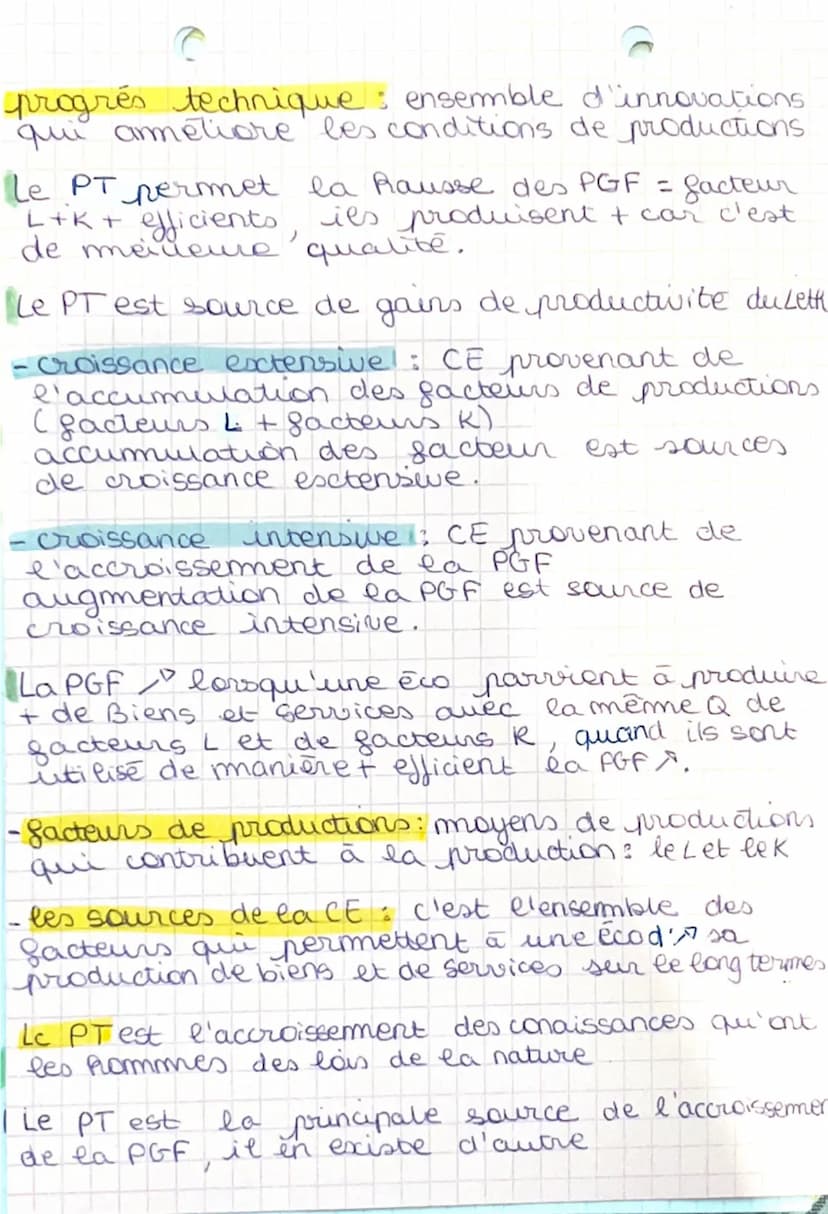 progrés technique : ensemble d'innovations
qui améliore les conditions de productions
Le PT permet la hausse des PGF = facteur
L+K + efficients, ils produisent + car c'est
de meilleure qualité.
Le PT est source de gains de productivite du L et K
- croissance exctensive : CE provenant de
l'accumulation des facteurs de productions
(facteurs L + facteurs K)
accumulation des facteur est sources
de croissance esctensive.
- croissance intensive : CE provenant de
l'accroissement de la PGF
augmentation de la PGF est source de
croissance intensive.
La PGF ↗ lorsqu'une éco parvient à produire
+ de Biens et services avec la même Q de
facteurs L et de facteurs K, quand ils sont
utilisé de manière + efficient la PGF ↗.
- facteurs de productions : moyens de productions
qui contribuent à la production : le L et le K
- les sources de la CE : c'est l'ensemble des
facteurs qui permettent à une éco d'↗ sa
production de biens et de services sur le long termes
Le PT est l'accroissement des conaissances qu'ont
les hommes des lois de la nature
Le PT est la principale source de l'accroissemen
de la PGF, il en existe d'autre